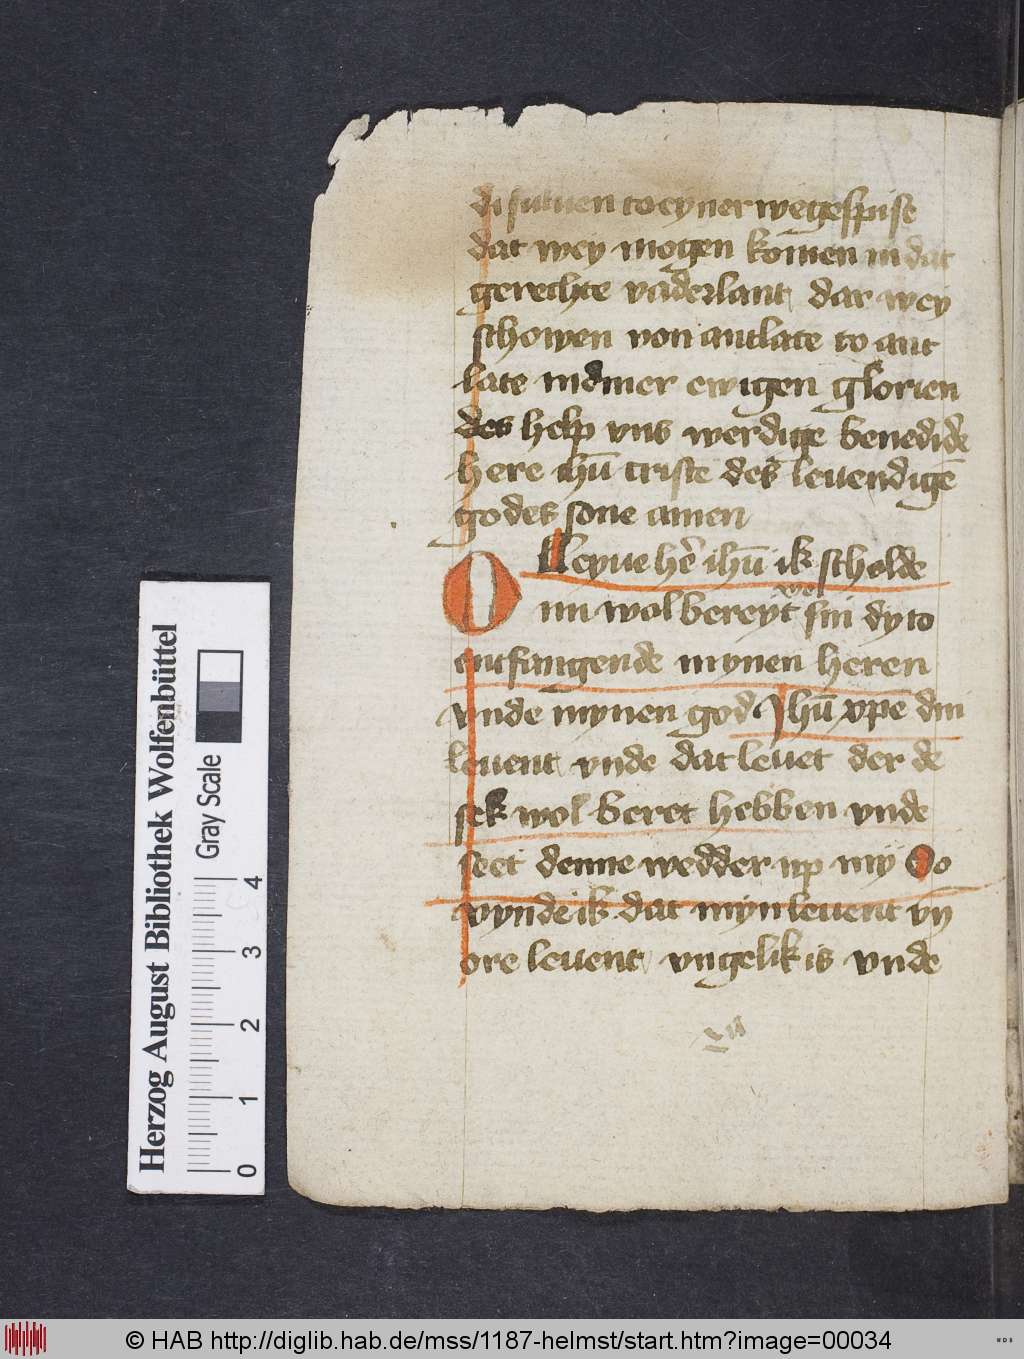 di suluen to eyner wegespise
dat wey mogen komen in dat
gerechte vaderlant dar wey
schowen von antlate to ant
late in diner ewigen glorien
des help vns werdige benedide
here ihū criste des leuendigē
godes sone amen
O leyue hē ihū ik scholde
nu wol bereyt wol sin dy to
entfangende mynen heren
vnde mynen god Ihū xpē din
leuent vnde dat leuet der de
sek wol beret hebben vnde
seet denne wedder up my So
vynde ik dat myn leuent vn̄
ore leuent vngelik is vnde
xii
Herzog August Bibliothek Wolfenbüttel
Gray Scale
0 1 2 3 4
© HAB http://diglib.hab.de/mss/1187-helmst/start.htm?image=00034
WDB